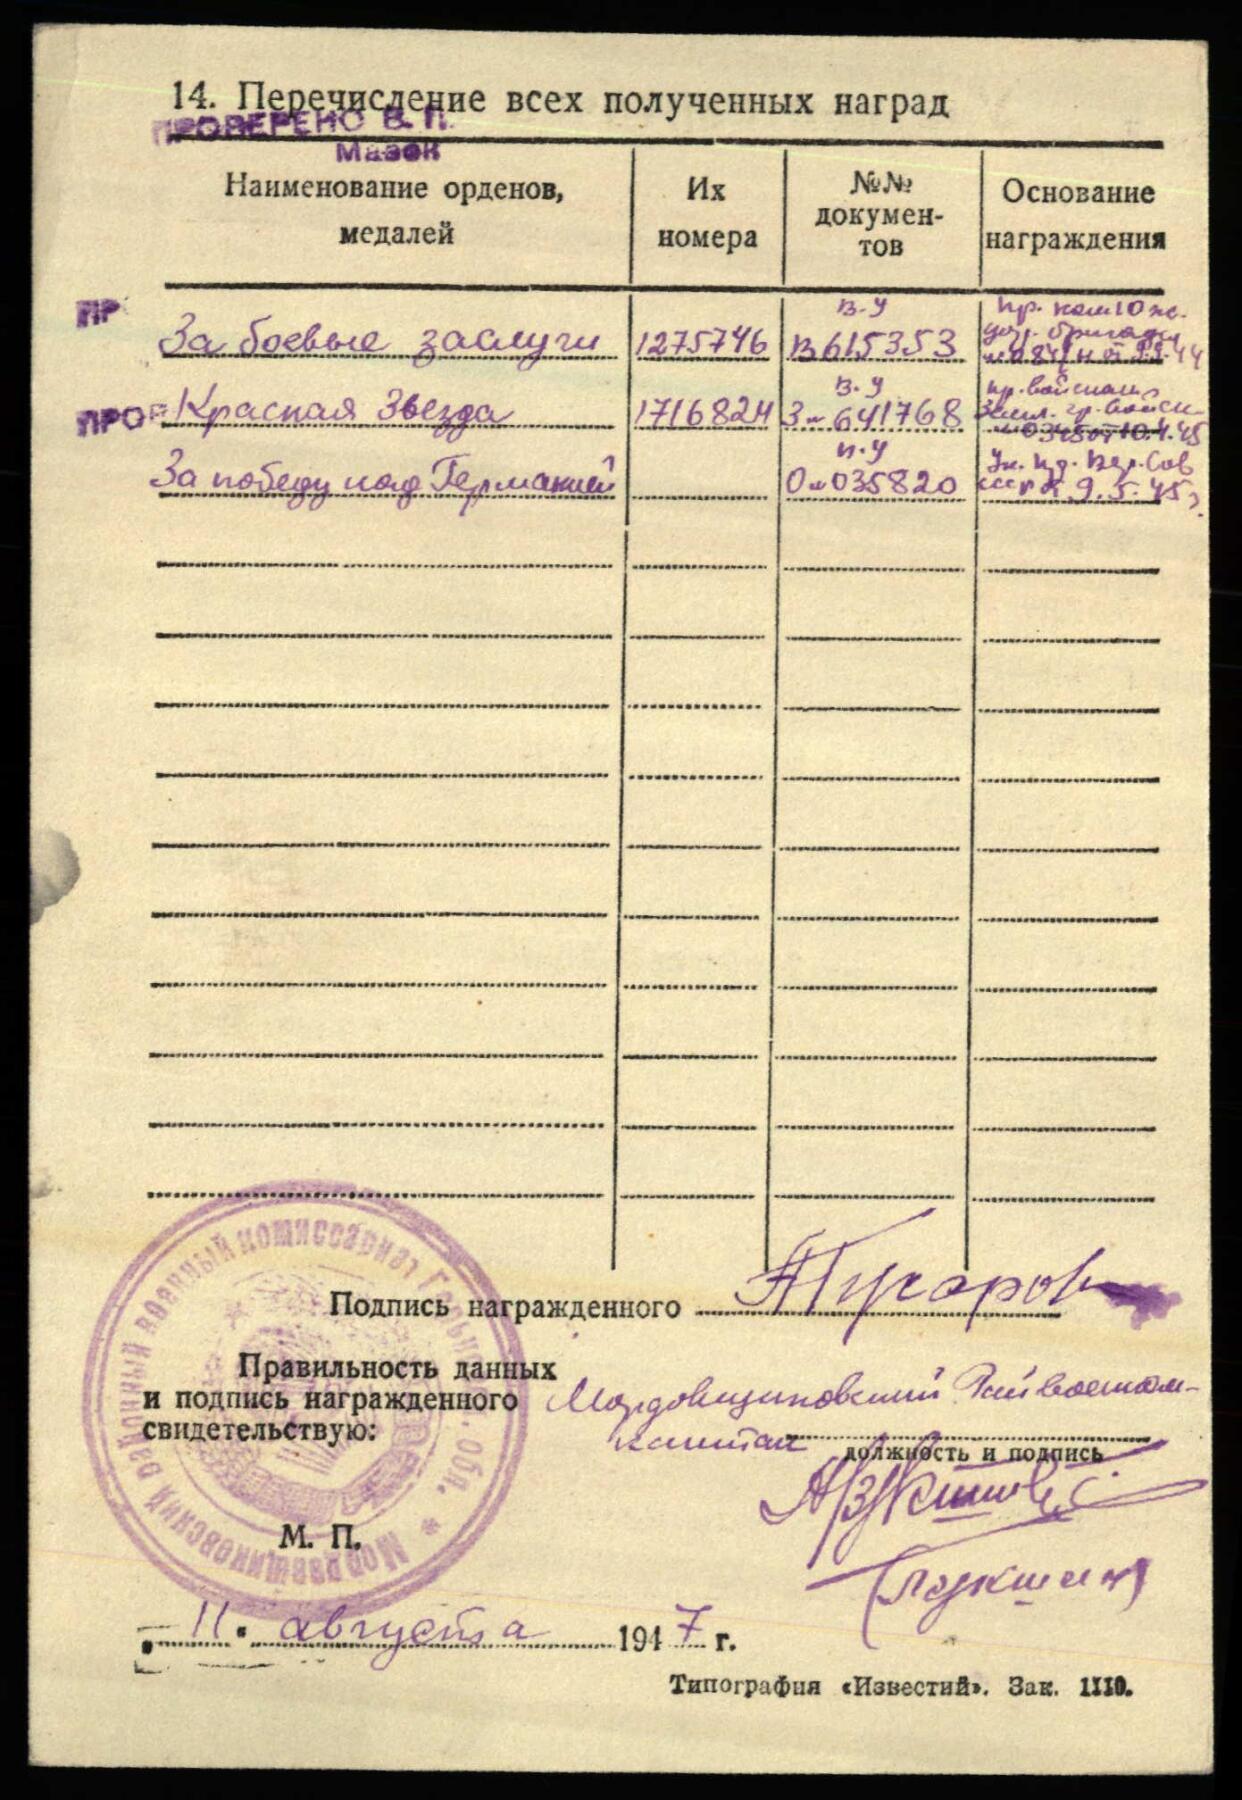 14. Перечисление всех полученных наград
ПРОВЕРЕНО В. П.
Мазок
Наименование орденов, медалей
Их номера
№№ документов
Основание награждения
ПР
В-У
За боевые заслуги 1275746 В615353
пр. ком 10 
бригады
ПРОВ
В. У
Красная Звезда 1716824 З № 641768
№ 0345 от 10.4.45
П. У
За победу над Германией О № 035820
Ук. През. Вер. Сов
СССР 9. 5. 45 г.
Подпись награжденного
Правильность данных
и подпись награжденного
свидетельствую:
Мордовщиковский Райвоенком-
капитан
должность и подпись
М. П.
Мордовщиковский районный военный комиссариат Горьков. обл.
11 августа 1947 г.
Типография «Известий». Зак. 1110.